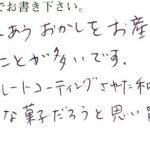 でお書き下さい。
ーあう おかしをお産
ことが多いです。
レートコーティングされた和
な菓子だろうと思い